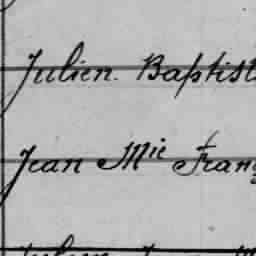 Julien. Baptist
Jean Mie Franç